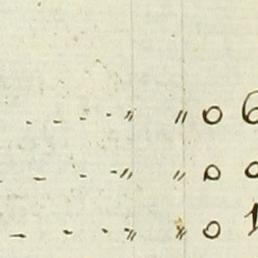 - - - - " " 0 6
- - - - " " 0 0
- - - - " " 0 1